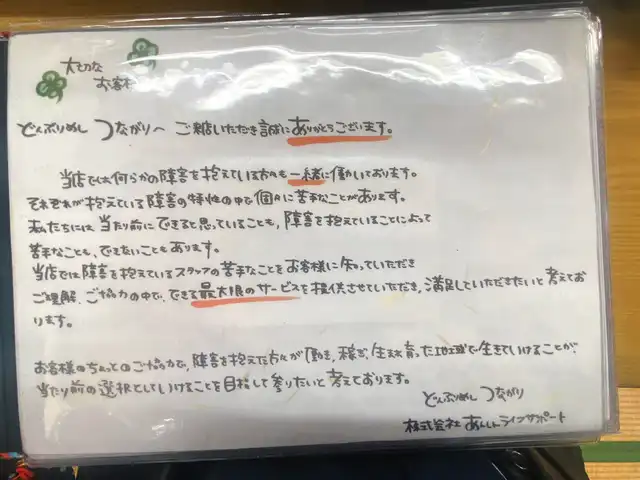 大切な
お客様
どんぶりめし つながりへ ご来店いただき誠にありがとうございます。
当店では何らかの障害を抱えている方々も一緒に働いております。
それぞれが抱えている障害の特性の中で個々に苦手なことがあります。
私たちには当たり前にできると思っていることも、障害を抱えていることによって
苦手なことも、できないこともあります。
当店では障害を抱えているスタッフの苦手なことをお客様に知っていただき
ご理解、ご協力の中で、できる最大限のサービスを提供させていただき、満足していただきたいと考えてお
ります。
お客様のちょっとのご協力で、障害を抱えた方々が働き、稼ぎ、生まれ育った地域で生きていけることが、
当たり前の選択としていけることを目指して参りたいと考えております。
どんぶりめし つながり
株式会社 あんしんライフサポート